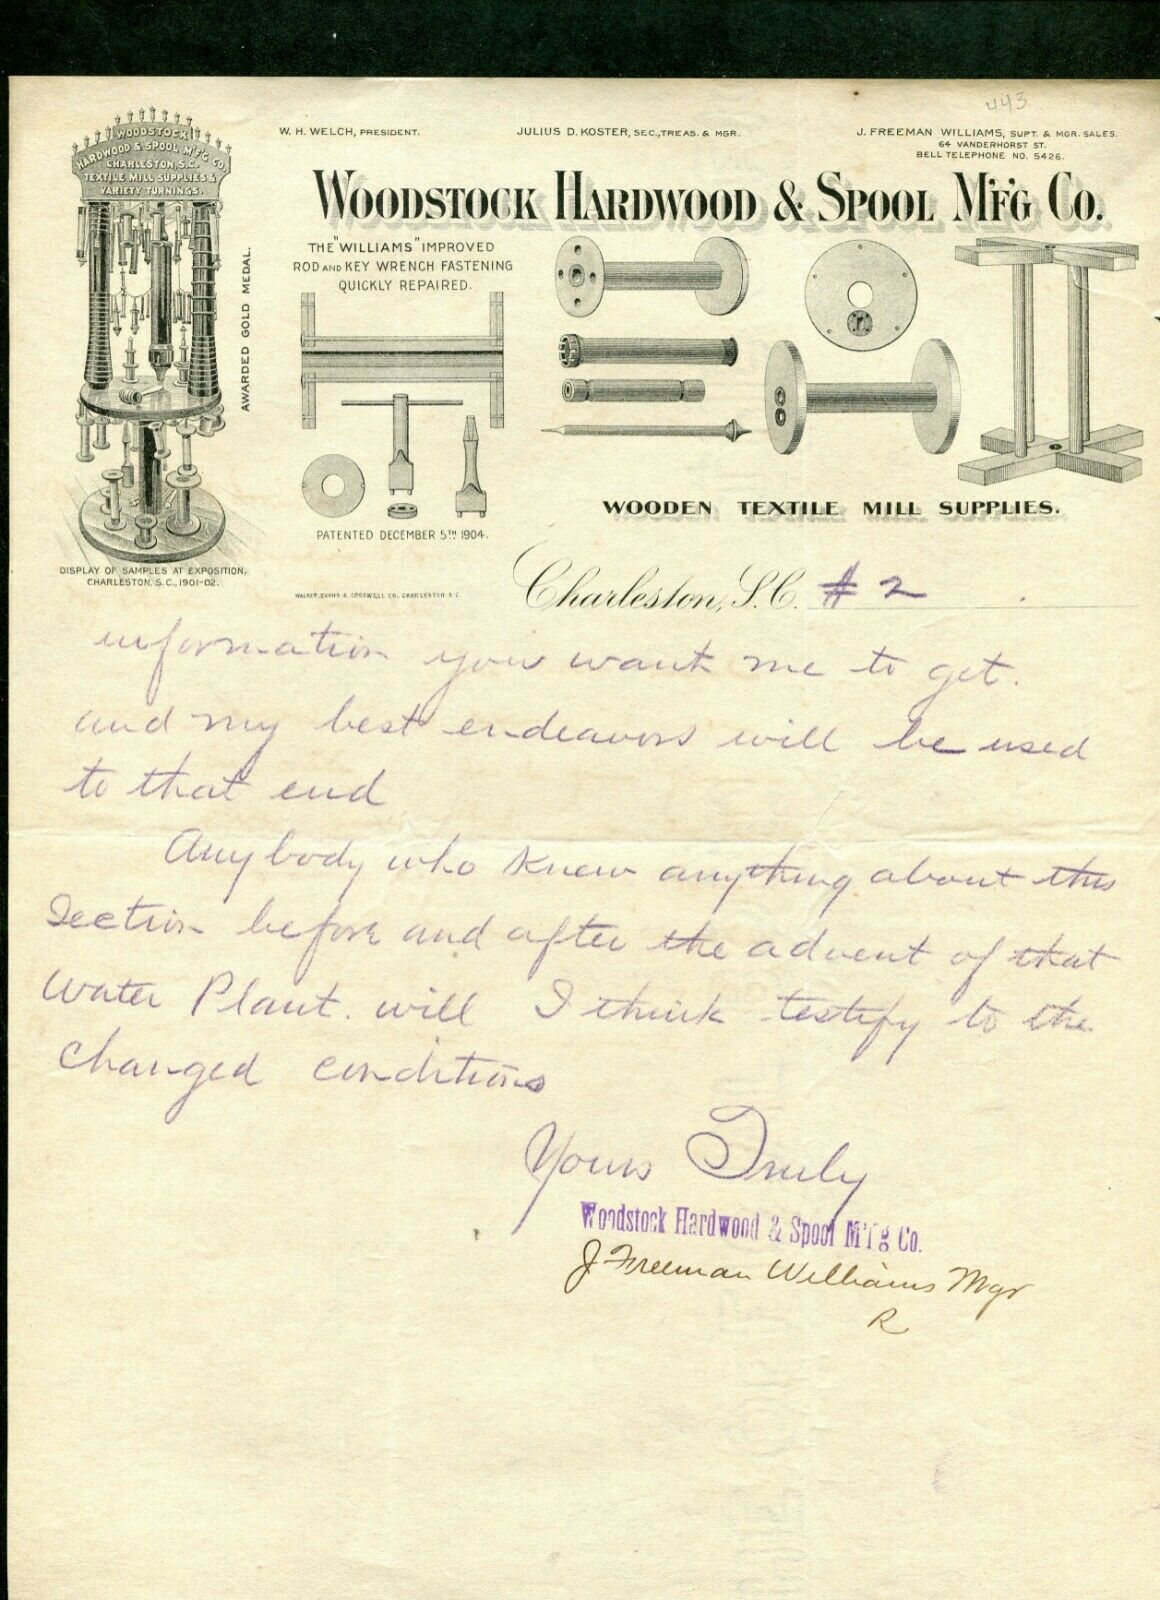 443
W. H. WELCH, PRESIDENT.
JULIUS D. KOSTER, SEC., TREAS. & MGR.
J. FREEMAN WILLIAMS, SUPT. & MGR. SALES.
64 VANDERHORST ST.
BELL TELEPHONE NO. 5426.
WOODSTOCK HARDWOOD & SPOOL M'F'G CO.
WOODSTOCK
HARDWOOD & SPOOL M'F'G CO.
CHARLESTON, S.C.
TEXTILE MILL SUPPLIES &
VARIETY TURNINGS.
AWARDED GOLD MEDAL.
DISPLAY OF SAMPLES AT EXPOSITION,
CHARLESTON, S.C., 1901-02.
THE "WILLIAMS" IMPROVED
ROD AND KEY WRENCH FASTENING
QUICKLY REPAIRED.
PATENTED DECEMBER 5TH 1904.
WALKER, EVANS & COGSWELL CO. CHARLESTON S.C.
WOODEN TEXTILE MILL SUPPLIES.
Charleston, S.C. #2
information you want me to get.
and my best endeavors will be used
to that end
Anybody who knew anything about this
Section before and after the advent of that
Water Plant. will I think testify to the
changed conditions
Yours Truly
Woodstock Hardwood & Spool M'f'g Co.
J Freeman Williams Mgr
R